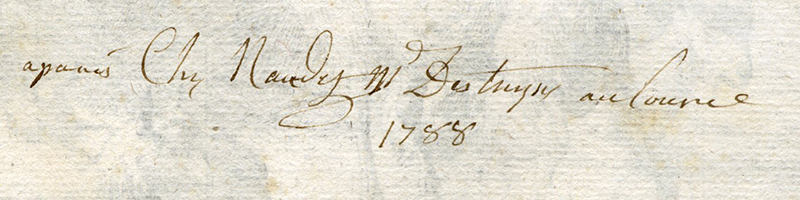 aparis Chez Naudet Md Destampes au Louvre
1788